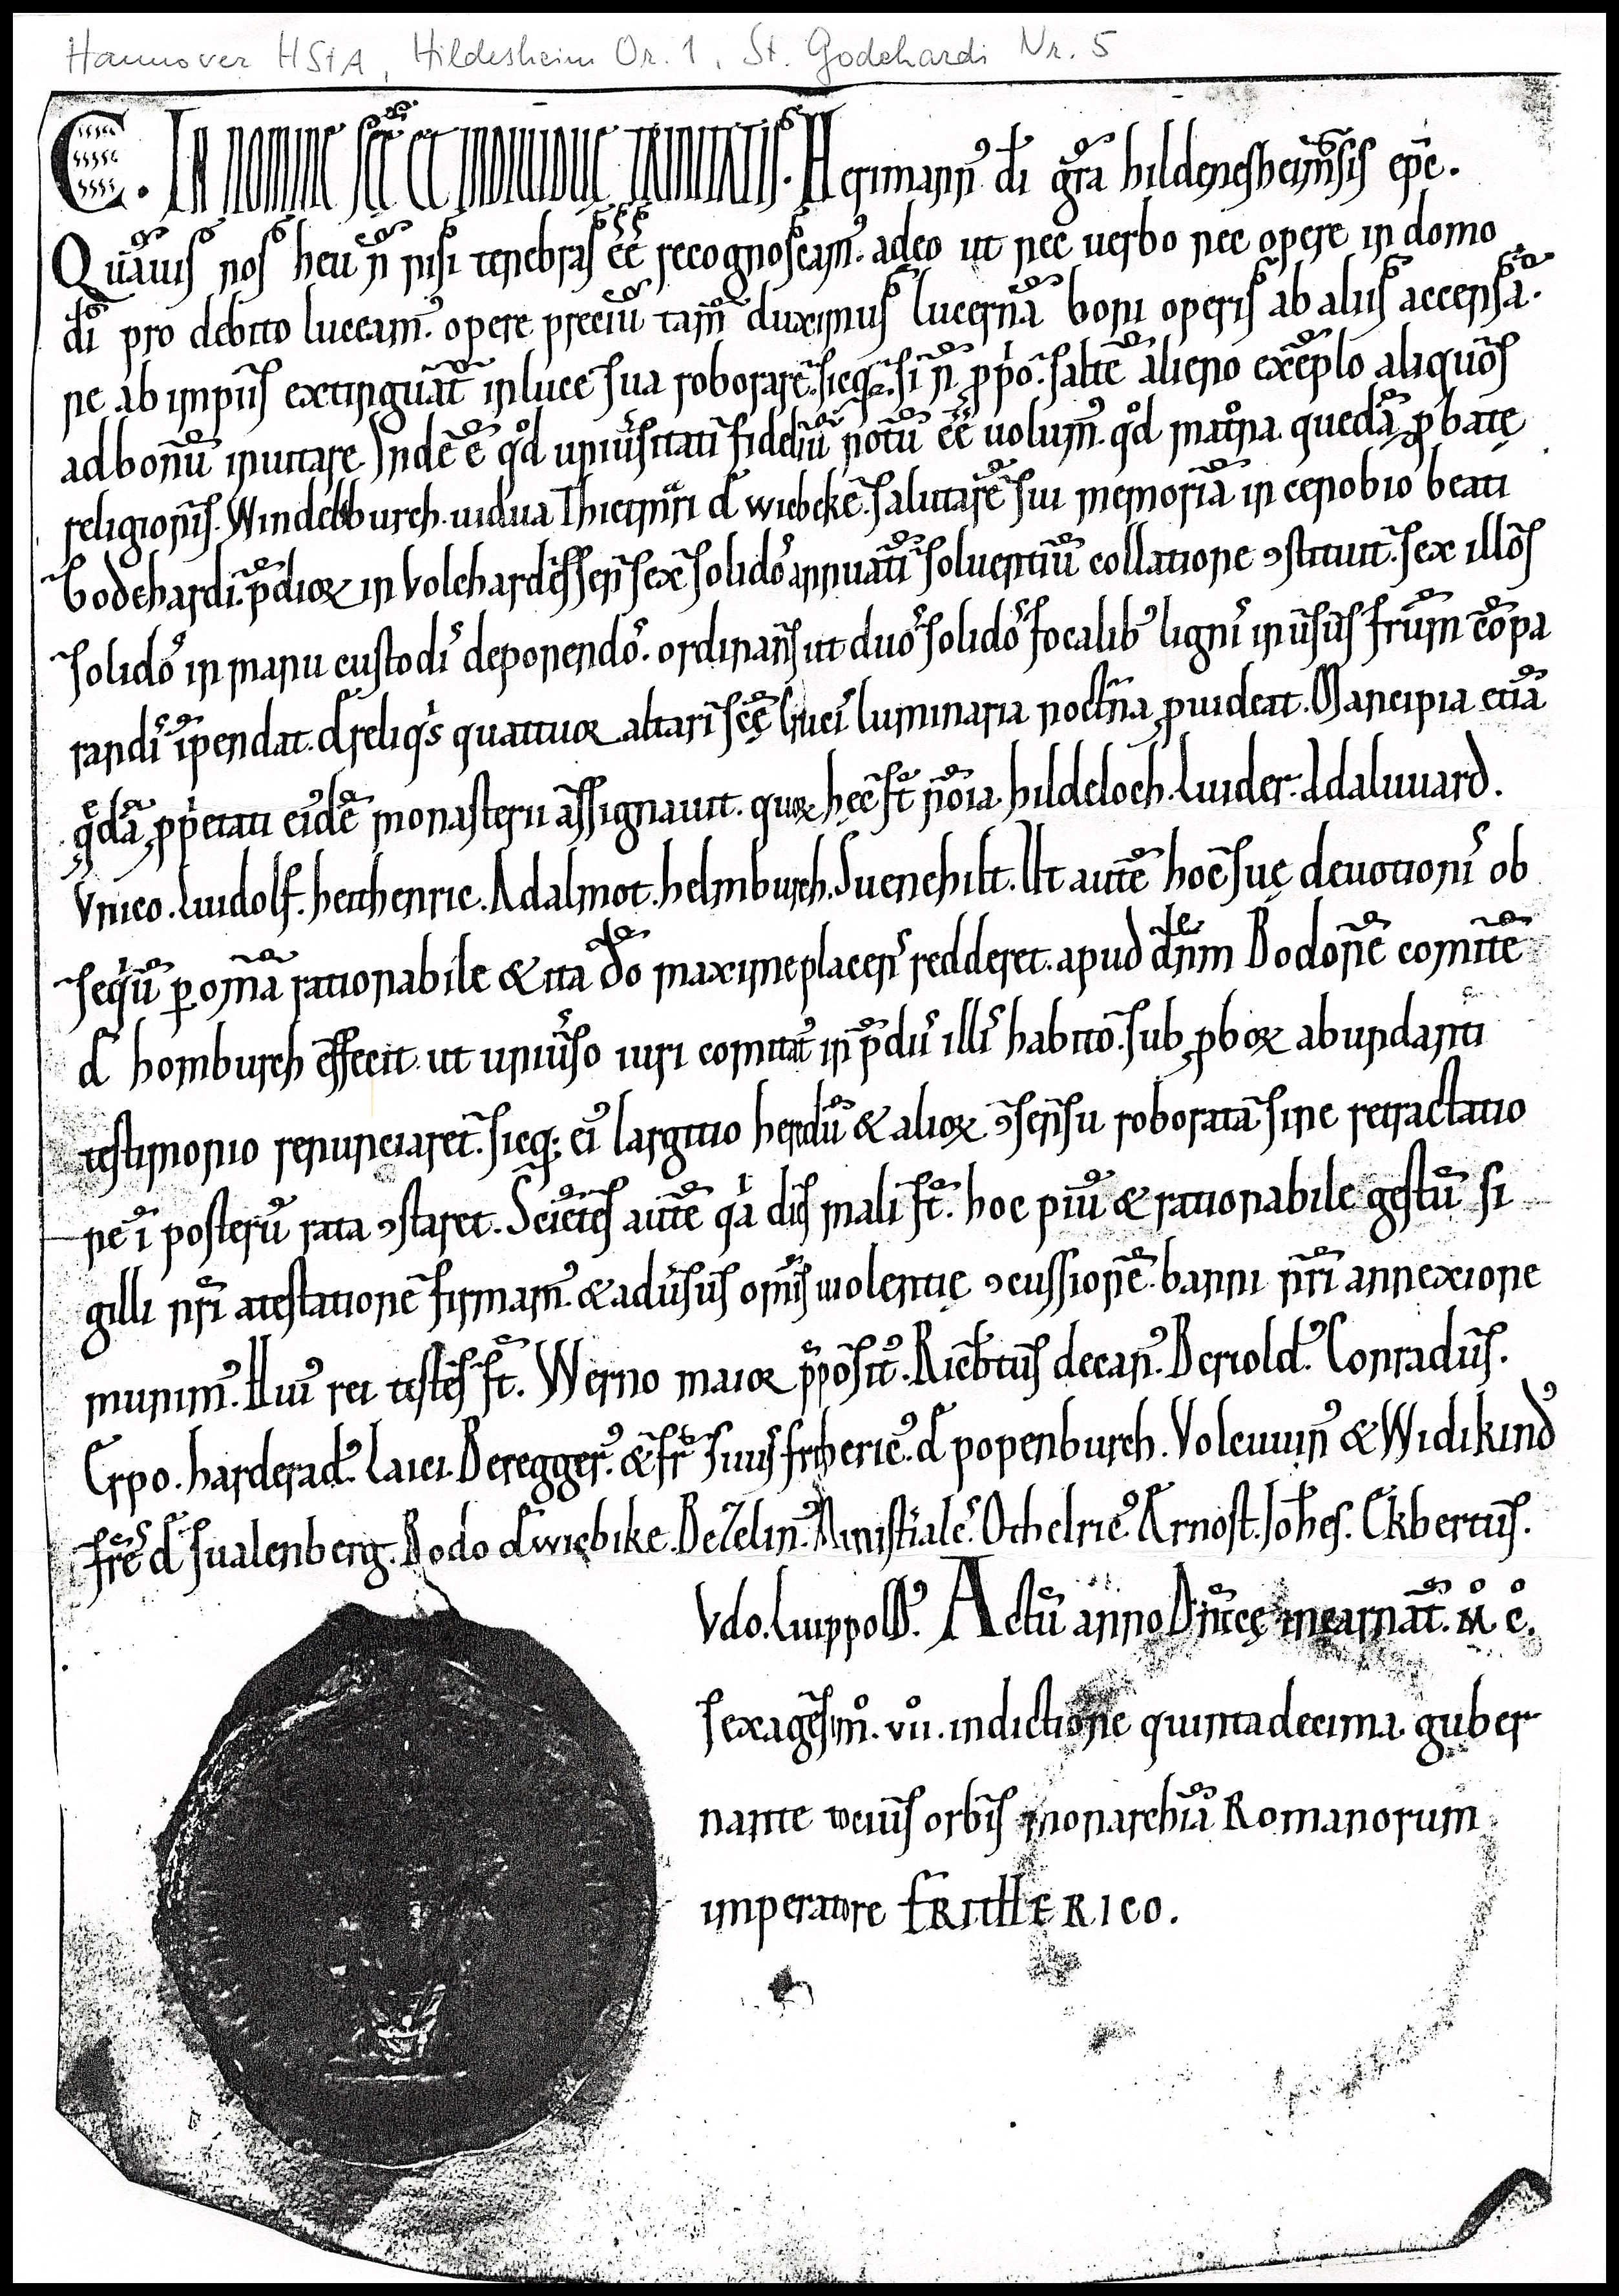 Hannover HStA, Hildesheim Or. 1, St. Godehardi Nr. 5
C. IN NOMINE sce̅ ET INDIVIDUE TRINITATIS. Hermann᾿ di̅ gr̅a hildenesheim̅sis ep̅c.
Qua̅uis nos heu n̅ nisi tenebras ee̅ recognoscam᾿. adeo ut nec uerbo nec opere in domo
di̅ pro debito luceam᾿. opere preciu̅ tam̅ duximus lucerna̅ boni operis ab aliis accensa̅.
ne ab impiis extinguat̅ in luce sua roborare. sicq; si n̅ pp̱o. salte̅ alieno exe̅plo aliquos
ad bonu̅ inuitare. Inde̅ e̅ qd̊ uniu̅sitati fideliu̅ notu̅ ee̅ uolum᾿. qd̊ mat̊na queda̅ ꝓbatę
religionis. Windelburch. uidua Thietmari d̅ wicbeke. salutare̅ sui memoria̅ in cenobio beati
Godehardi. p̅dioꝝ in Volchardessen sex solido᾿ annuati̅ soluentiu̅ collatione ꝯstituit. sex illos
solido᾿ in manu custodi᾿ deponendo᾿. ordinans ut duo᾿ solido᾿ focalib᾿ ligni᾿ in usus fru̅m co̅pa
randi᾿ i̅pendat. d̅ reliq᾿s quattuor altari sc̅ę Cruci᾿ luminaria noct̅na ꝓuideat. Mancipia etia̅
q̊da̅ ꝓp̱etati eide̅ monasterii assignauit. quoꝝ hec st̅ no̅ia. hildeloch. Luider. Adaluuard.
Vnico. Luidolf. hethenric. Adalmot. helmburch. Suenehilt. Ut aute̅ hoc suę deuotioni᾿ ob
sequiu̅ ꝑ om̅a rationabile & ita do̅ maxime placen᾿ redderet. apud dn̅m Bodone̅ comite̅
d̅ homburch effecit. ut uniu̅so iuri comitat᾿ in p̅dii᾿ illi᾿ habito. sub ꝓboꝝ abundanti
testimonio renunciaret. sicq; ei᾿ largitio heredu̅ & alioꝝ ꝯsensu roborata. sine retractatio
ne i̅ posteru̅ rata ꝯstaret. Scie̅tes aute̅ qa̅ dies mali st̅. hoc piu̅ & rationabile gestu̅ si
gilli nr̅i atestatione firmam᾿. & adu̅sus om̅is uiolentię ꝯcussione̅. banni nr̅i annexione
munim᾿. Hui᾿ rei testes st̅. Werno maior p̅posit᾿. Ricb̅tus decan᾿. Bertold᾿. Conradus.
Erpo. harderad᾿. Laici. Beregger᾿. & fr̅ suus frithericᵒ᾿ d̅ popenburch. Volcuuin᾿ & Widikind᾿
fr̅e᾿ d̅ sualenberg. Bodo d̅ wicbike. Bezelin᾿. Ministiale᾿. Othelric᾿. Arnost. Joh̅es. Ekbertus.
Vdo. Luippold᾿. Actu̅ anno Dn̅icę incarnat̅. M̊. C̊.
sexagesim̊. vii̊. indictione quinta decima. guber
nante tocius orbis monarchia̅ Romanorum
imperatore FRITHERICO.